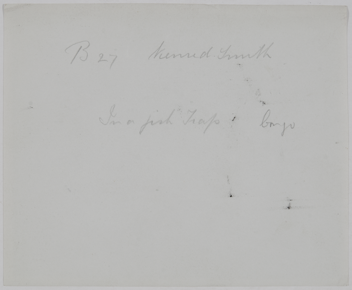 B 27 Kenred Smith
In a fish Trap Congo